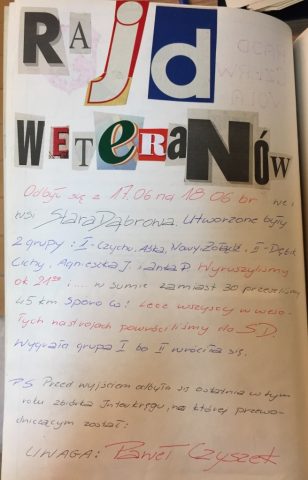 RAjd
WETERANÓW
Odbył się z 17.06 na 18 06 br we
wsi Stara Dąbrowa. Utworzone były
2 grupy: I - Czychu, Aśka, Nowy, II - Dębik,
Cichy, Agnieszka J. i Anka P. Wyruszyliśmy
ok 21³⁰ i .... w sumie zamiast 30 przeszliśmy
45 km. Sporo Co! Lecz wszyscy w weso-
łych nastrojach powróciliśmy do SD.
Wygrała grupa I bo II wróciła się.
PS Przed wyjściem odbyła się ostatnia w tym
roku zbiórka Interkręgu, na której przewo-
dniczącym został:
UWAGA: Paweł Czyszek